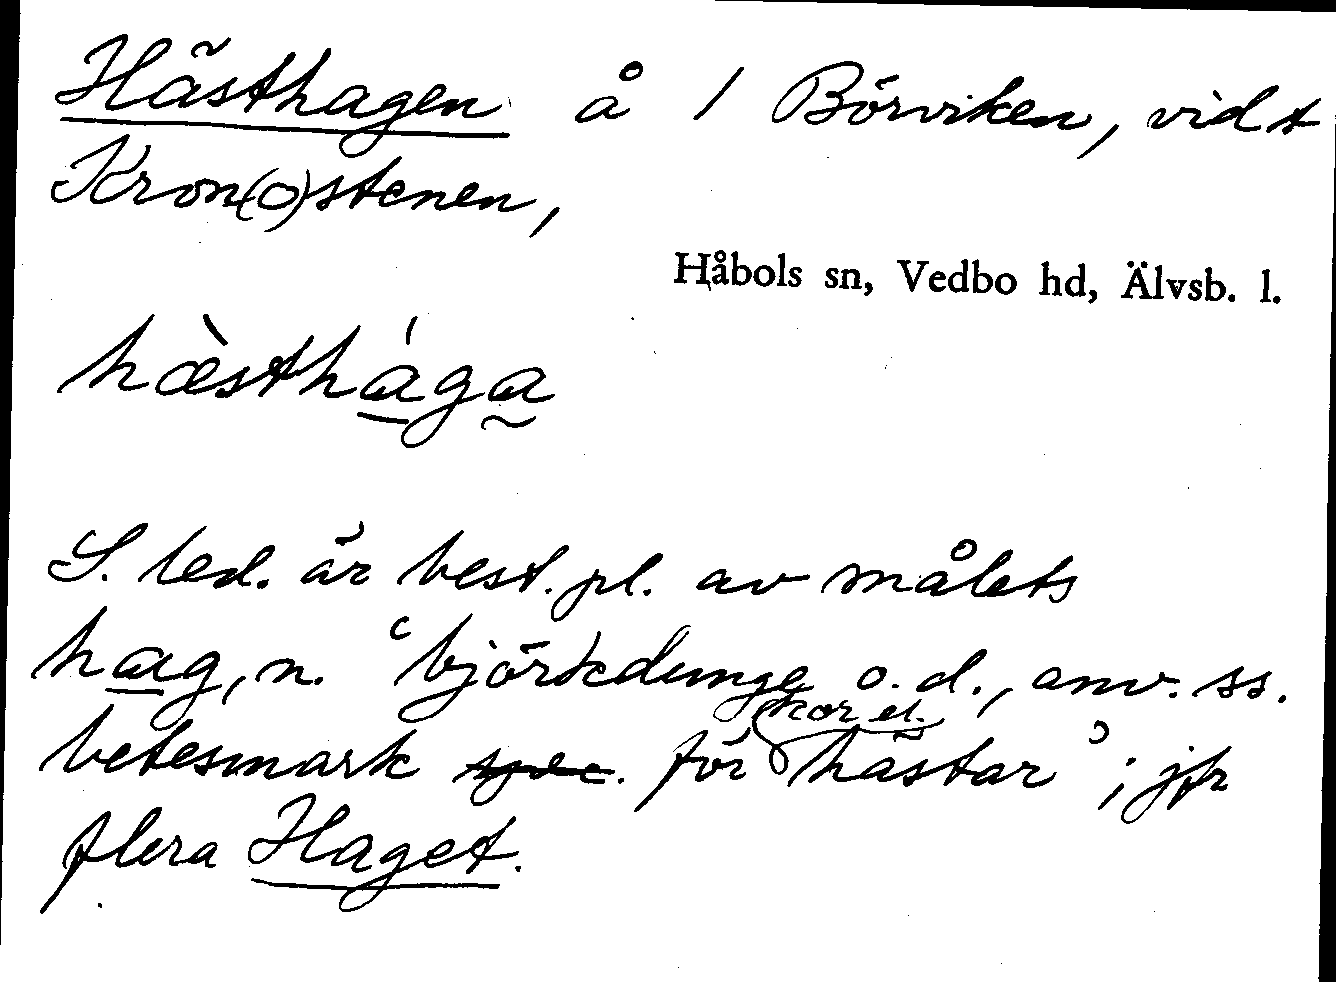 Hästhagen å 1 Börviken, vid t
Kron(o)stenen,
Håbols sn, Vedbo hd, Älvsb. l.
hæ̀sthága
S. led. är best. pl. av målets
hag, n. ‘björkdunge o. d., anv. ss.
betesmark spec. för kor el. hästar’; jfr
flera Haget.